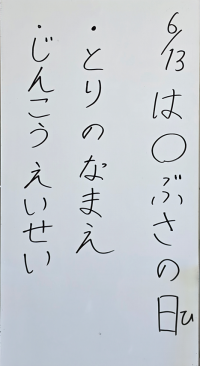 6/13は○ぶさの日ひ
・とりのなまえ
・じんこうえいせい